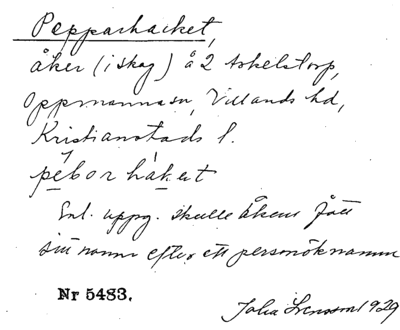 Pepparhacket,
åker (i skog) å 2 Askelstorp,
Oppmanna sn, Villands hd,
Kristianstads l.
pèborhákət
Enl. uppg. skulle åkern fått
sitt namn efter ett personöknamn
Nr 5483.
John Svensson 1929